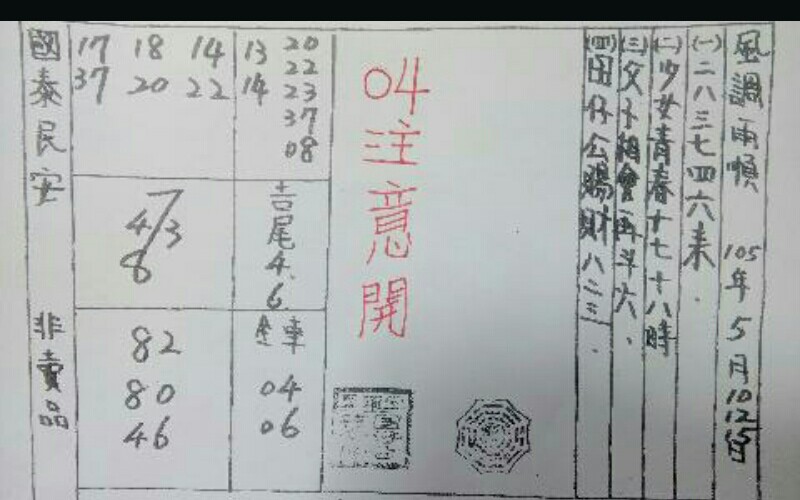 風調雨順 105年5月10 12 15日
(一)二八三七四六來.
(二)少女青春十七十八時
(三)父子相會再斗六.
(四)田仔公賜財八三三.
04注意開
20
13 22
14 23
37
08
吉尾4.6
坐車
04
06
17 18 14
37 20 22
7
4/3
8
82
80
46
國泰民安 非賣品